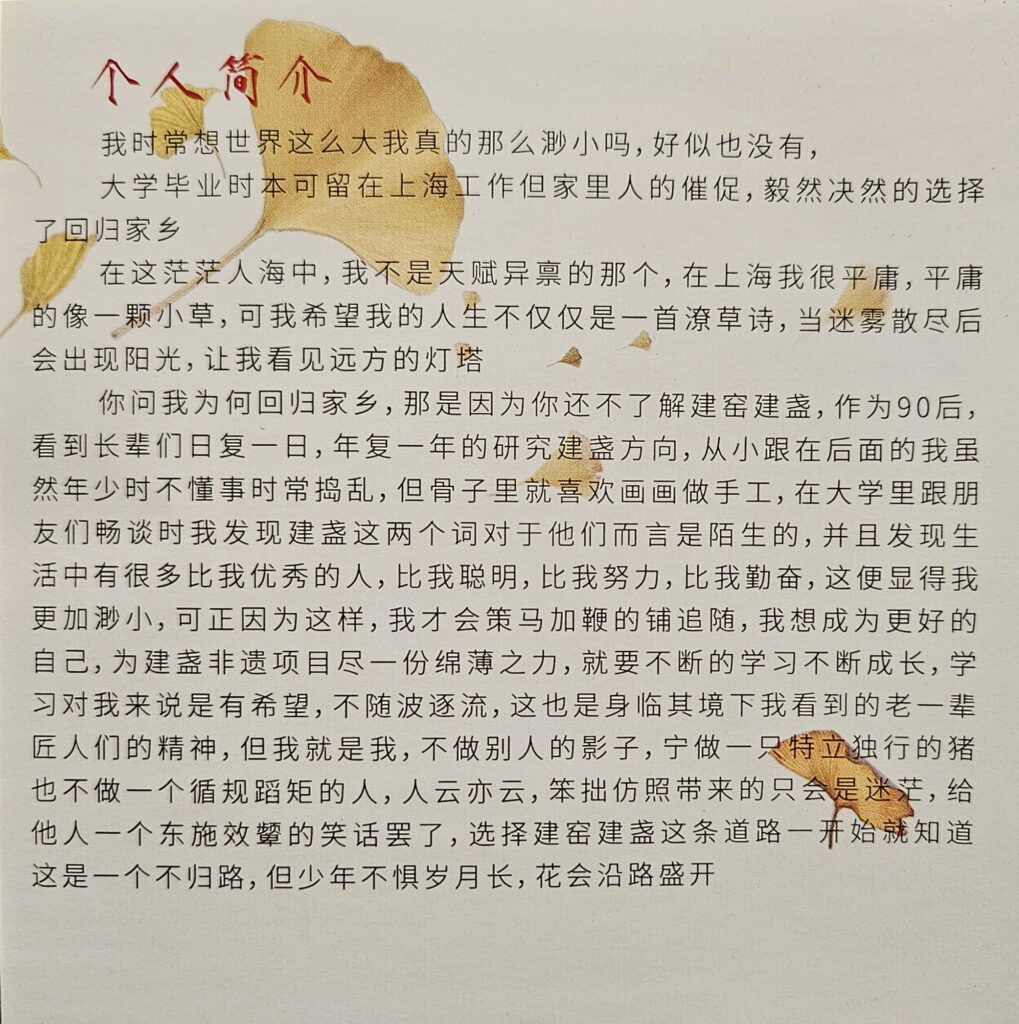 个人简介
我时常想世界这么大我真的那么渺小吗，好似也没有，
大学毕业时本可留在上海工作但家里人的催促，毅然决然的选择
了回归家乡
在这茫茫人海中，我不是天赋异禀的那个，在上海我很平庸，平庸
的像一颗小草，可我希望我的人生不仅仅是一首潦草诗，当迷雾散尽后
会出现阳光，让我看见远方的灯塔
你问我为何回归家乡，那是因为你还不了解建窑建盏，作为90后，
看到长辈们日复一日，年复一年的研究建盏方向，从小跟在后面的我虽
然年少时不懂事时常捣乱，但骨子里就喜欢画画做手工，在大学里跟朋
友们畅谈时我发现建盏这两个词对于他们而言是陌生的，并且发现生
活中有很多比我优秀的人，比我聪明，比我努力，比我勤奋，这便显得我
更加渺小，可正因为这样，我才会策马加鞭的铺追随，我想成为更好的
自己，为建盏非遗项目尽一份绵薄之力，就要不断的学习不断成长，学
习对我来说是有希望，不随波逐流，这也是身临其境下我看到的老一辈
匠人们的精神，但我就是我，不做别人的影子，宁做一只特立独行的猪
也不做一个循规蹈矩的人，人云亦云，笨拙仿照带来的只会是迷茫，给
他人一个东施效颦的笑话罢了，选择建窑建盏这条道路一开始就知道
这是一个不归路，但少年不惧岁月长，花会沿路盛开